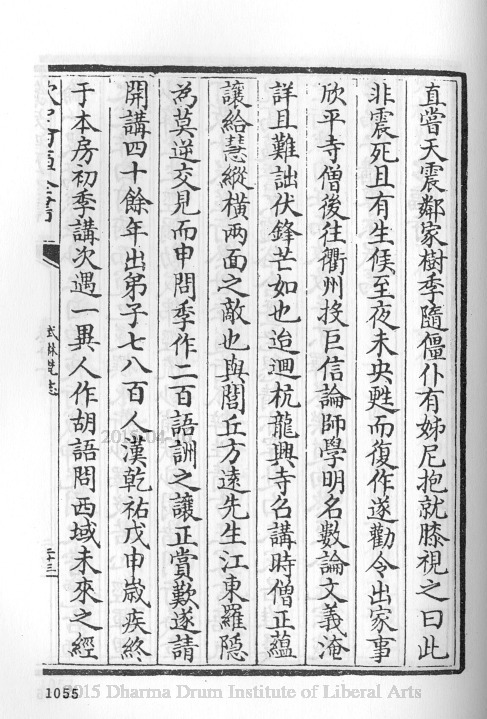 直嘗天震鄰家樹季隨僵仆有姊尼抱就膝視之曰此
非震死且有生候至夜未央甦而復作遂勸令出家事
欣平寺僧後往衢州投巨信論師學明名數論文義淹
詳且難詘伏鋒芒如也迨迴杭龍興寺召講時僧正蘊
讓給慧縱橫兩面之敵也與閭丘方遠先生江東羅隱
為莫逆交見而申問季作二百語訓之讓正賞歎遂請
開講四十餘年出弟子七八百人漢乾祐戊申歲疾終
于本房初季講次遇一異人作胡語問西域未來之經
武林梵志
1055
2015 Dharma Drum Institute of Liberal Arts